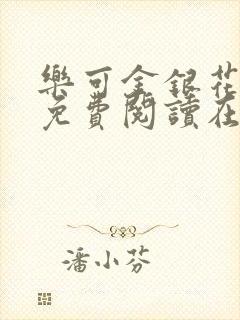 樂可金銀花
免費閱讀在
潘小芬